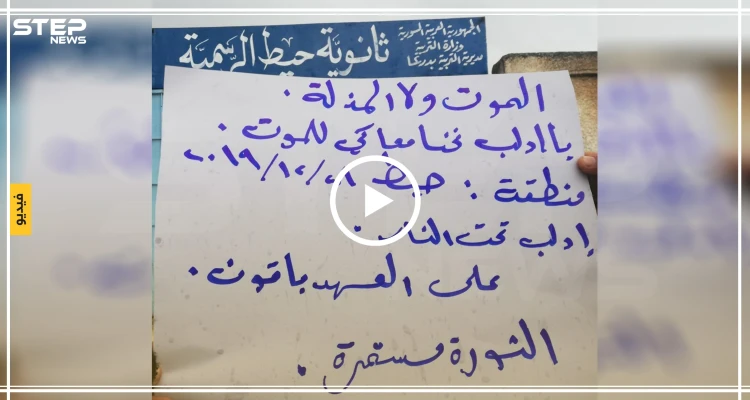 STEP
NEWS
الجمهورية العربية السورية
وزارة التربية
مديرية التربية بدرعا
ثانوية حيط الرسمية
الموت ولا المذلة .
يا ادلب نحنا معاكي للموت .
منطقة : حيط ٢٠١٩/١٢/٢١
إدلب تحت النار .
على العهد باقون .
الثورة مستمرة .
فيديو